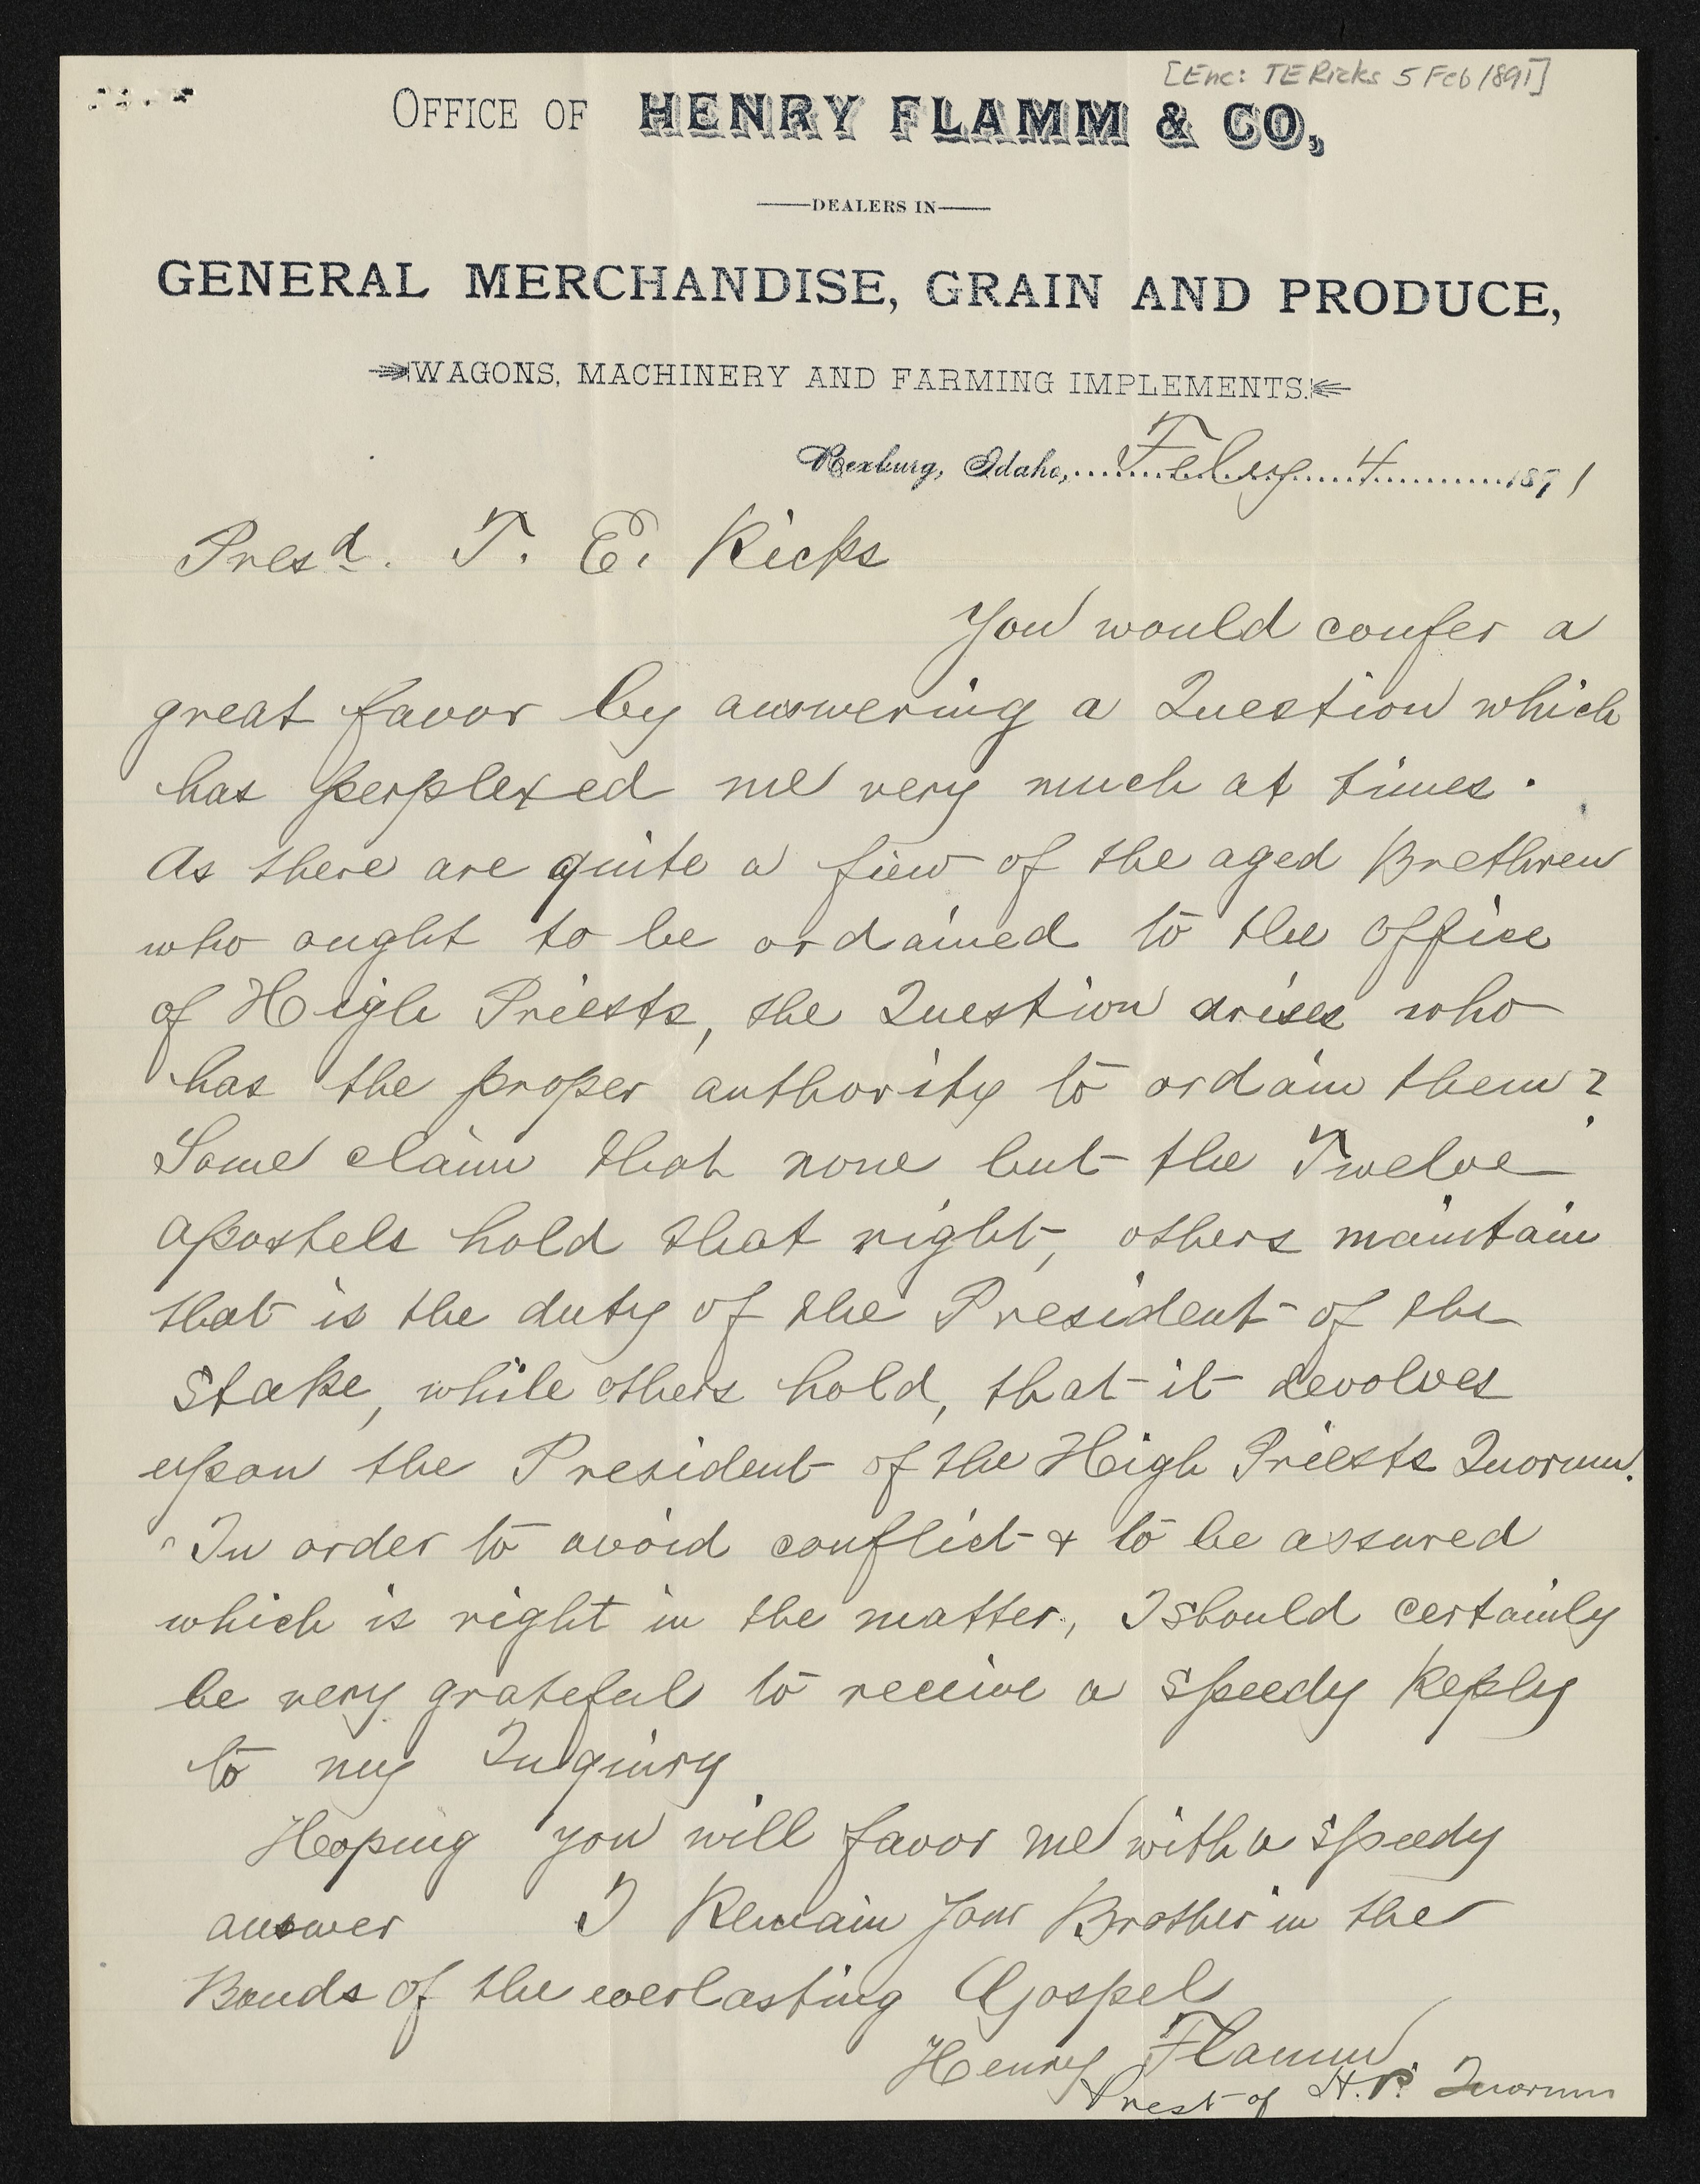 [Enc: TE Ricks 5 Feb 1891]
OFFICE OF HENRY FLAMM & CO,
DEALERS IN
GENERAL MERCHANDISE, GRAIN AND PRODUCE,
WAGONS, MACHINERY AND FARMING IMPLEMENTS.
Rexburg, Idaho, Feby 4 1891
Presd. T. E. Ricks
You would confer a
great favor by answering a Question which
has perplexed me very much at times.
As there are quite a fiew of the aged Brethren
who ought to be ordained to the office
of High Priests, the Question arises who
has the proper authority to ordain them?
Some claim that none but the Twelve
apostels hold that right, others maintain
that is the duty of the President of the
Stake, while others hold, that it devolves
upon the President of the High Priests Quorum.
In order to avoid conflict & to be assured
which is right in the matter, I should certainly
be very grateful to receive a speedy Reply
to my Inquiry
Hoping you will favor me with a speedy
answer I Remain Your Brother in the
Bonds of the everlasting Gospel
Henry Flamm.
Prest of H. P. Quorum